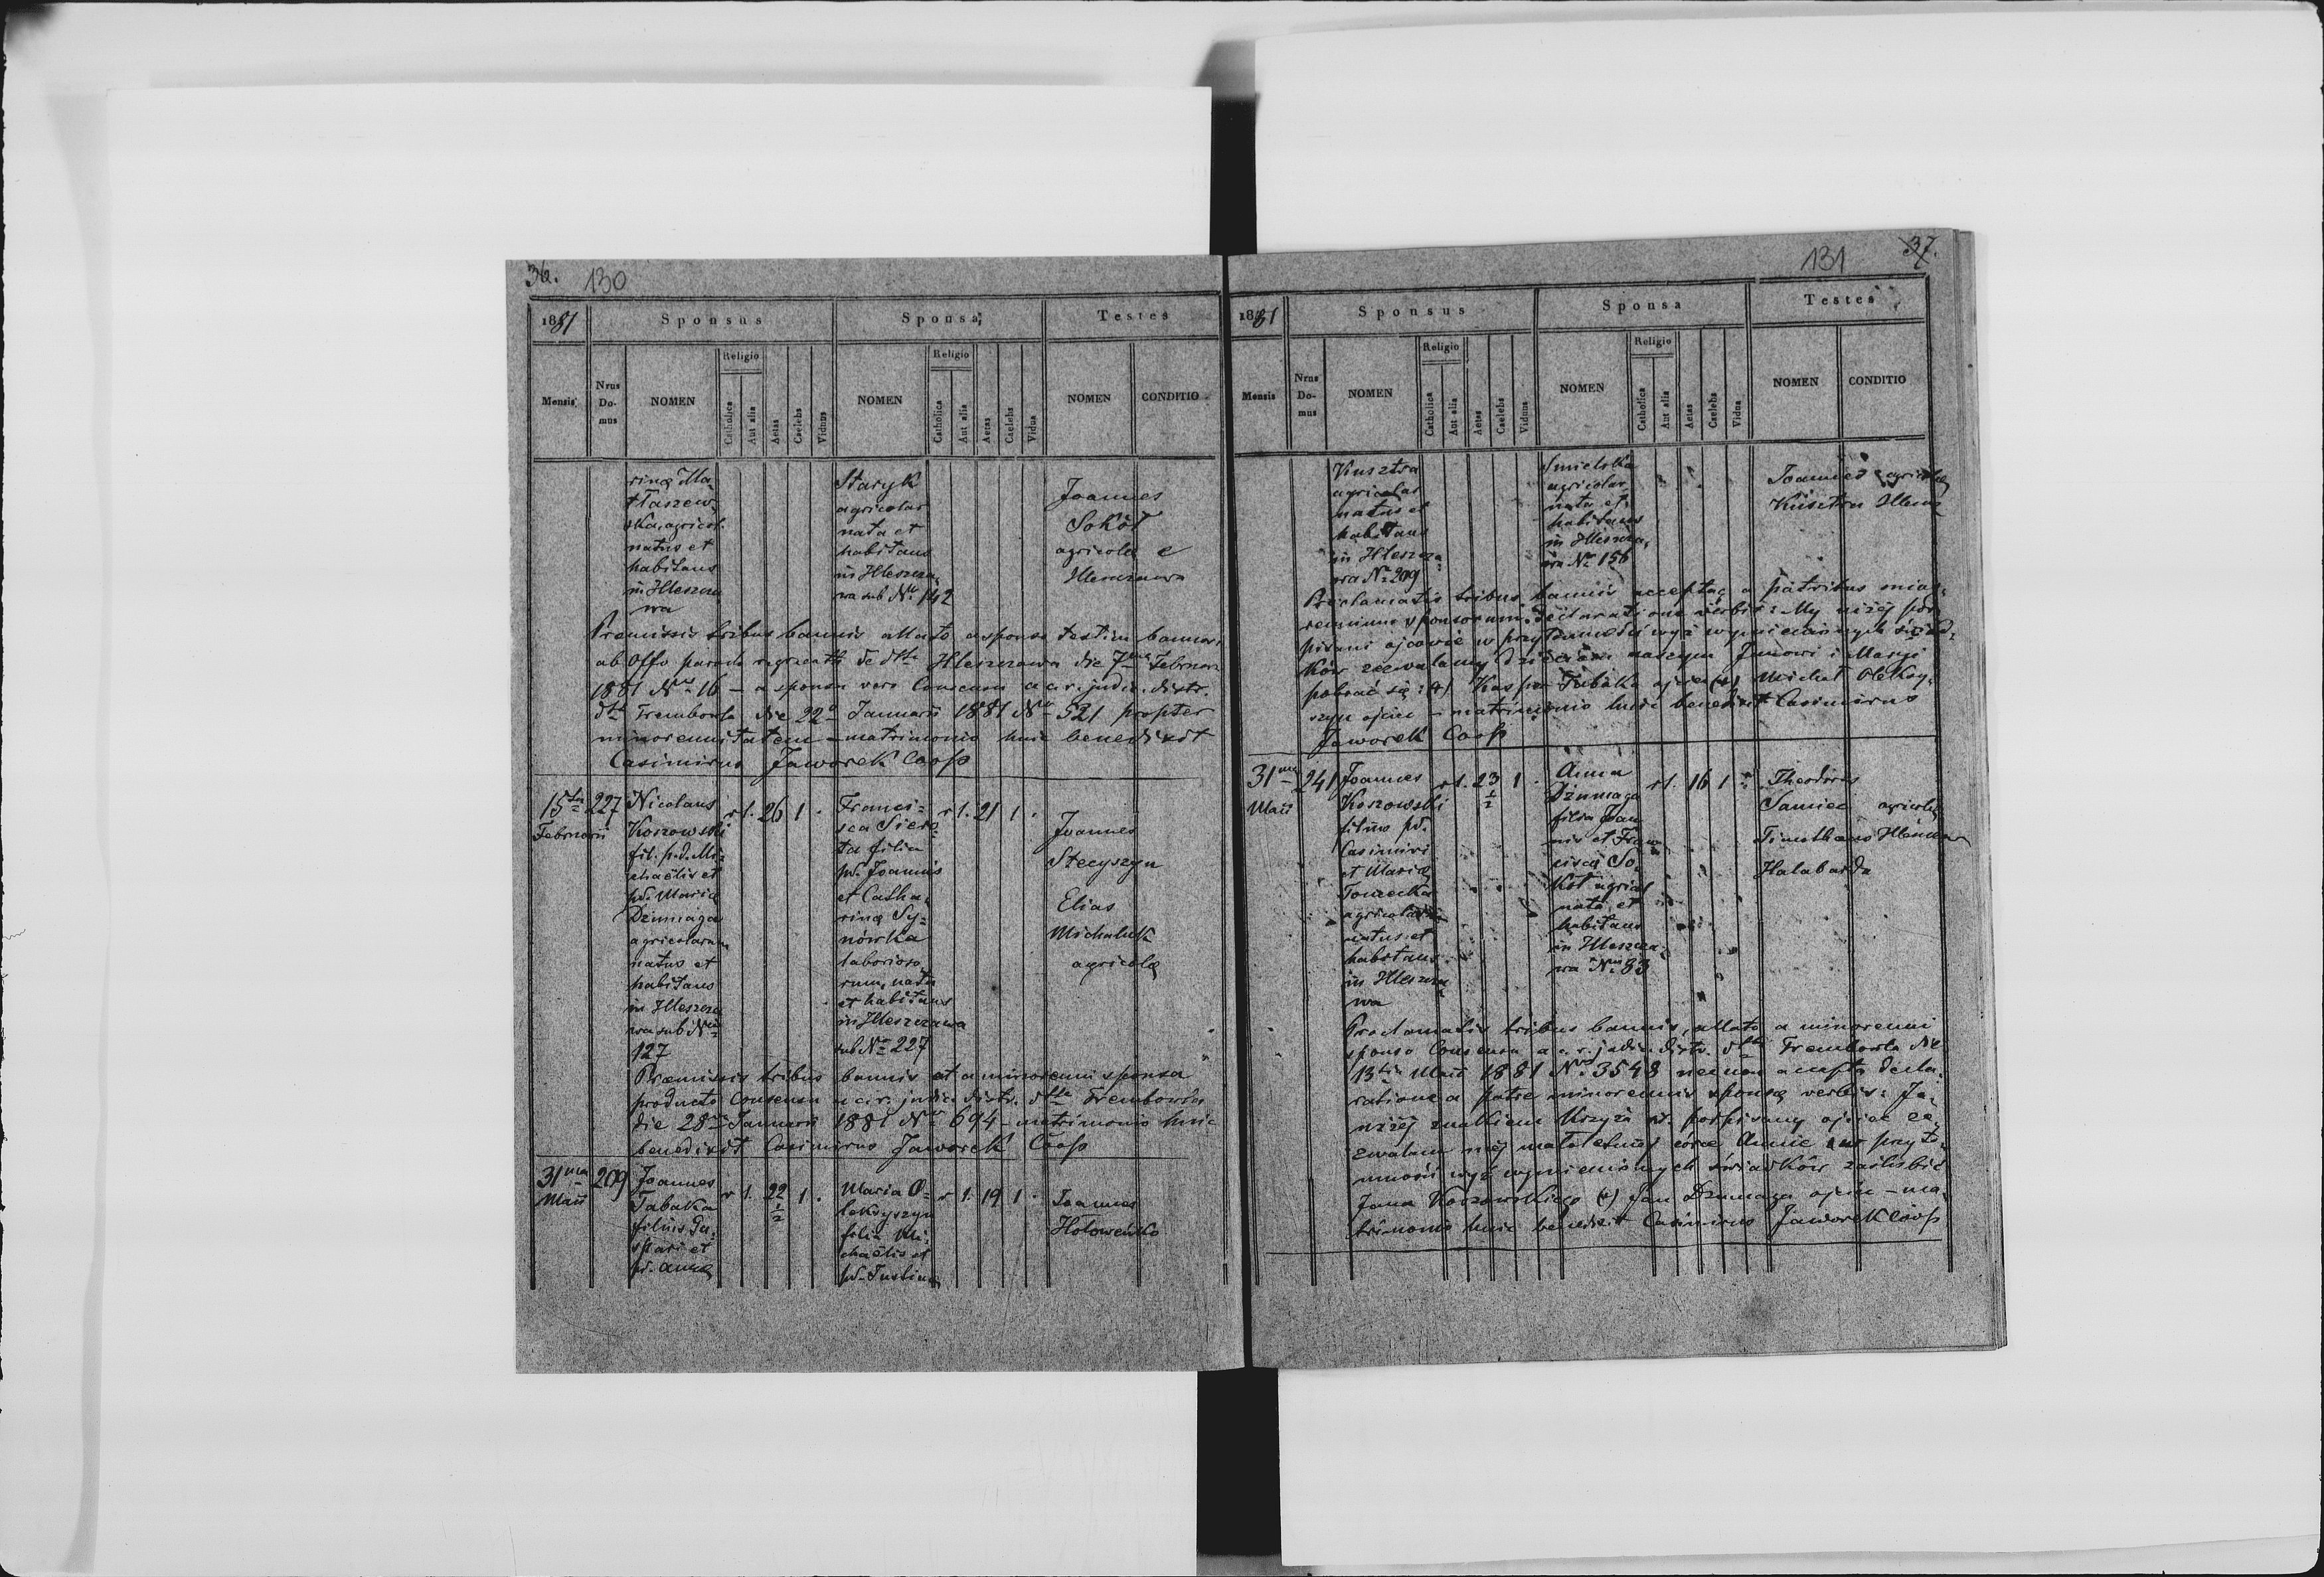 36. 130
1881 Sponsus Sponsa Testes
Mensis Nrus Domus NOMEN Religio Catholica Aut alia Aetas Caelebs Viduus NOMEN Religio Catholica Aut alia Aetas Caelebs Vidua NOMEN CONDITIO
rinæ Ma-
tłaszew-
ska, agricol.
natus et
habitans
in Hleszcza
wa
Staryk
agricolar
nata et
habitans
in Hleszcza-
wa sub No 142
Joannes
Sokół
agricola e
Hleszczawa
Premissis tribus bannis allato a sponso testim bannor.
ab Offo paroch r. gr. cath de dtto Hleszczawa die 7ma Februar
1881 No 16 – a sponsa vero Consensu a c.r. judic. distr.
dtto Trembowla die 22a Januarii 1881 No 521 propter
minorennitatem – matrimonio huic benedixit
Casimirus Jaworek Coop
15ta Februarii
227
Nicolaus
Koszowski
fil. p.d. Mi-
chaëlis et
pd. Maria
Dżumaga
agricolarum
natus et
habitans
in Hleszcza
wa sub No
127
r 1. 26 1 .
Franci-
sca Siero-
ta filia
pd. Joannis
et Catha-
rinæ Sy-
nówka
laborioso-
rum, nata
et habitans
in Hleszczawa
sub No 227
r 1. 21 1 .
Joannes
Stecyszyn
Elias
Michaluk
agricolæ
Præmissis tribus bannis et a minorenni sponsa
producto Consensu a c.r. judic. distr. dtto Trembowla
die 28va Januarii 1881 No 694 – matrimonio huic
benedixit Casimirus Jaworek Coop
31ma Maii
209
Joannes
Tabaka
filius Ga-
spari et
pd. Annæ
r 1. 22 1/2 1 .
Maria O-
leksyszyn
filia Mi-
chaëlis et
pd. Justinæ
r 1. 19 1 .
Joannes
Hołoweńko
131 37.
1881 Sponsus Sponsa Testes
Mensis Nrus Domus NOMEN Religio Catholica Aut alia Aetas Caelebs Viduus NOMEN Religio Catholica Aut alia Aetas Caelebs Vidua NOMEN CONDITIO
Kusztra
agricolar
natus et
habitans
in Hleszcza-
wa No 209
Smielska
agricolar
nata et
habitans
in Hleszcza-
wa No 156
Joannes agricolæ
Kusztra
Proclamatis tribus bannis acceptaq a patribus mino-
rennium sponsorum declaratione verbis: My niżej pod-
pisani ojcowie w przytomności wyż wymienionych świad-
ków zezwalamy dzieciom naszym Janowi i Maryi
pobrać się: (+) Kasper Tabaka ojciec (+) Michał Oleksy-
szyn ojciec – matrimonio huic benedixit Casimirus
Jaworek Coop
31ma Maii
241
Joannes
Koszowski
filius pd.
Casimiri
et Mariæ
Tomecka
agricolarum
natus et
habitans
in Hleszcza
wa
r 1. 23 1/2 1 .
Anna
Dżumaga
filia Joan
nis et Fran-
ciscæ So-
kół agricol
nata et
habitans
in Hleszcza-
wa No 83
r 1. 16 1
Theodorus
Samiec agricolæ
Timotheus
Halabarda
Proclamatis tribus bannis, allato a minorenni
sponso Consensu a c.r. judic. distr. dtto Trembowla die
13tia Maii 1881 No 3548 necnon accepta decla-
ratione a patre minorennis sponsæ verbis: Ja
niżej znakiem Krzyża św. podpisany ojciec ze-
zwalam mej małoletniej córce Annie w przyto-
mności wyż wymienionych świadków zaślubić
Jana Koszowskiego (+) Jan Dżumaga ojciec – ma-
trimonio huic benedixit Casimirus Jaworek Coop